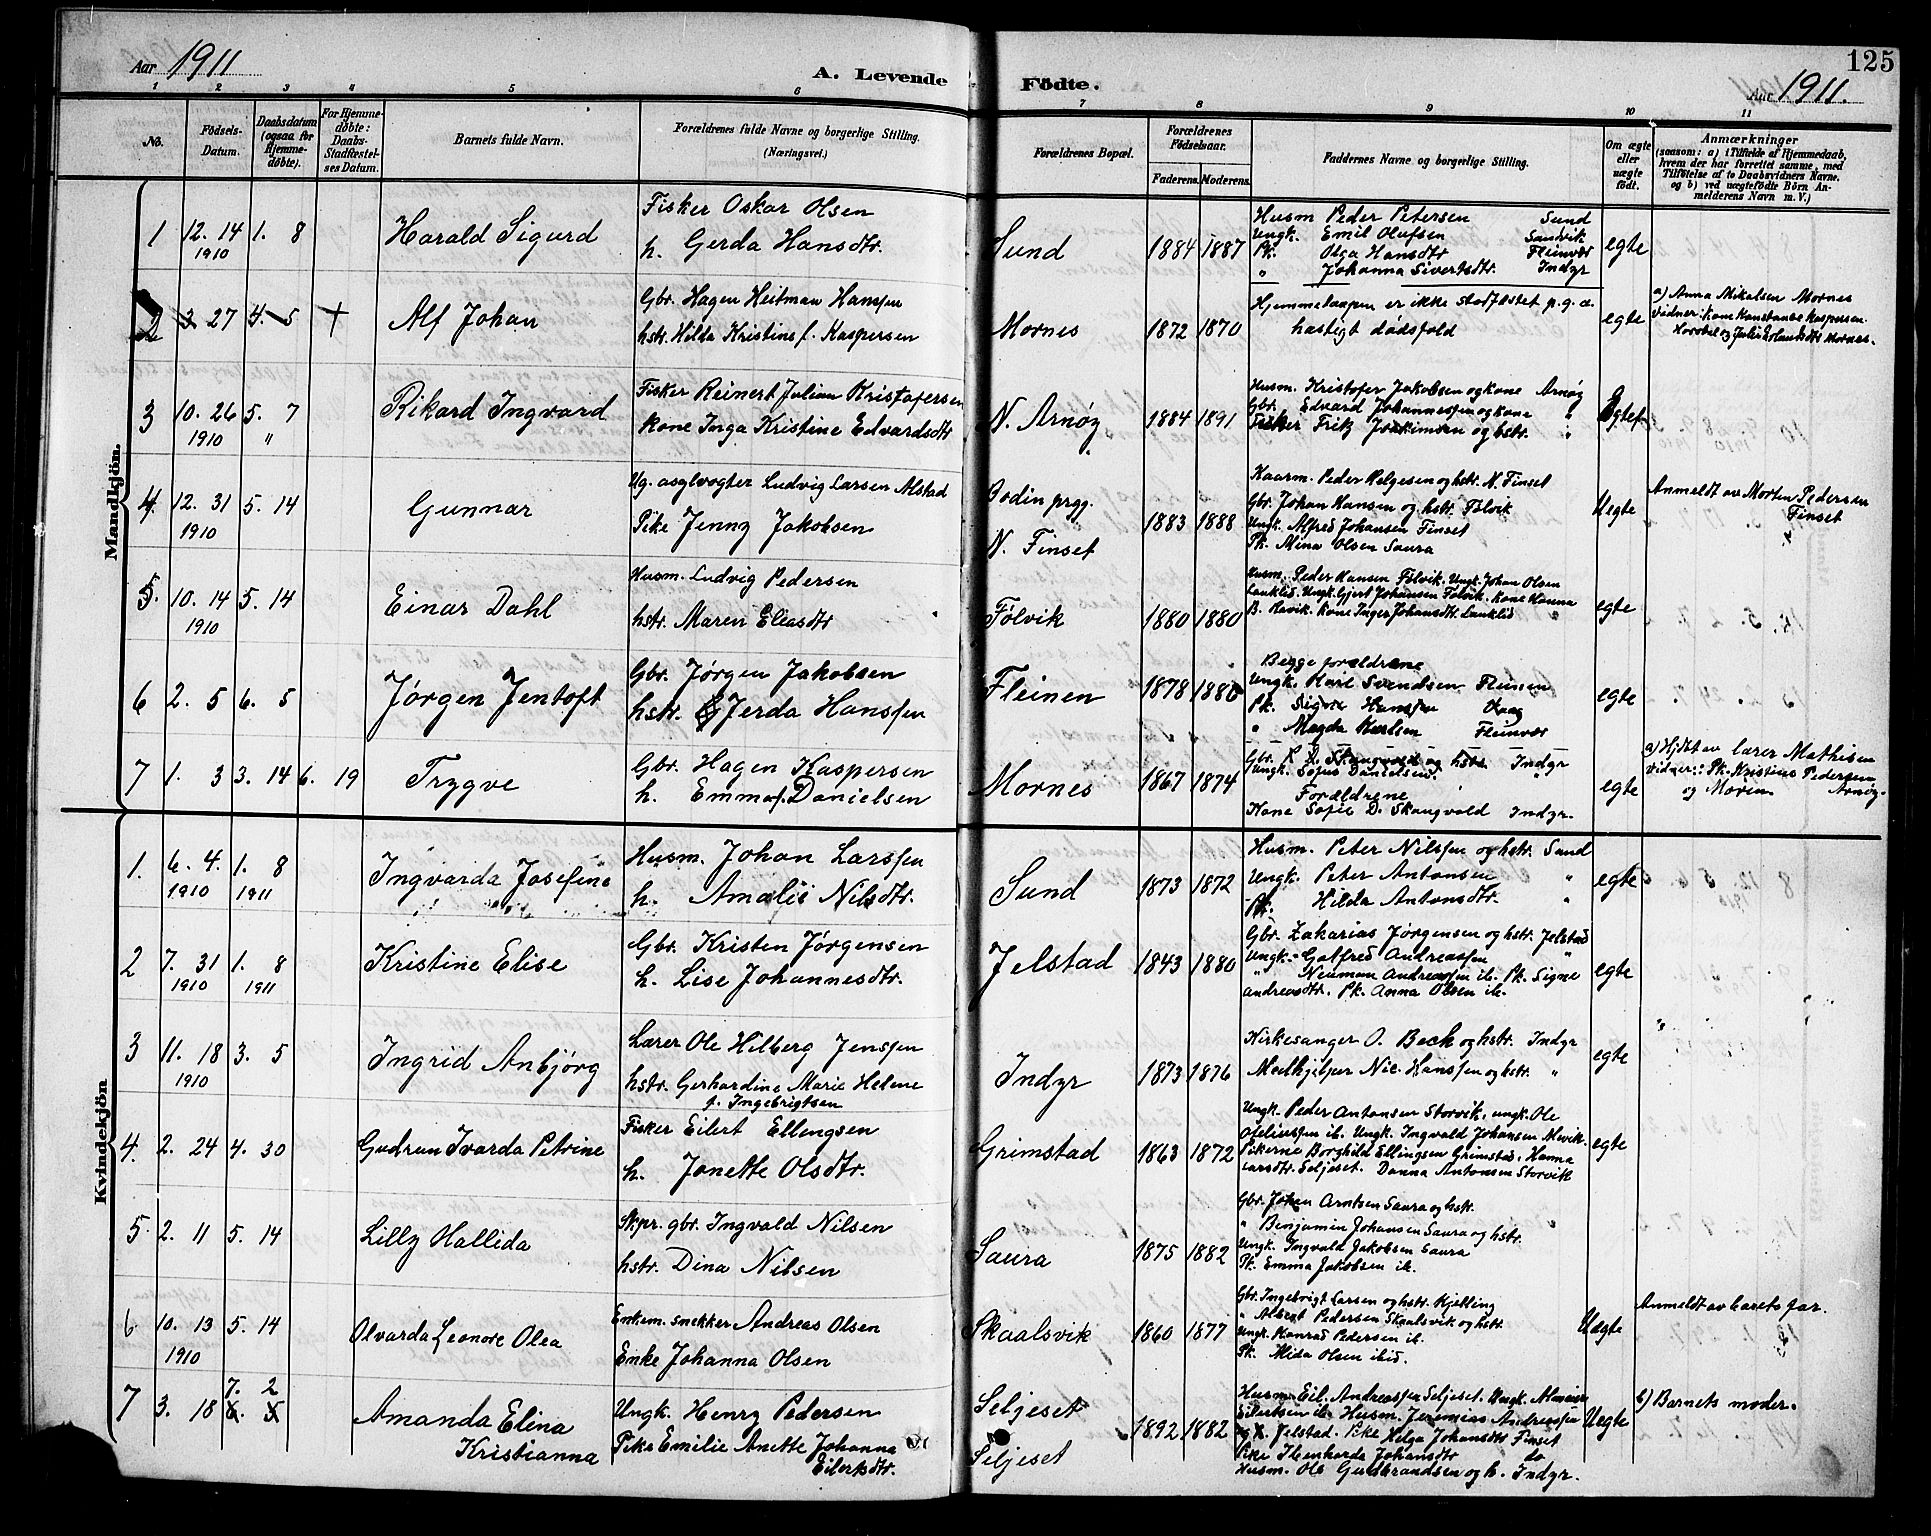 Aar 1911
A. Levende
Födte.
125
Aar 1911.
1 2 3 4 5 6 7 8 9 10 11
No.
Födsels-Datum.
Daabsdatum (ogsaa for Hjemme-döbte).
For Hjemme-döbte: Daabs-Stadfæstel-ses Datum.
Barnets fulde Navn.
Forældrenes fulde Navne og borgerlige Stilling.
(Næringsvei.)
Forældrenes Bopæl.
Forældrenes Födselsaar.
Faderens. Moderens.
Faddernes Navne og borgerlige Stilling.
Om ægte eller uægte födt.
Anmærkninger
(saasom: a) i Tilfælde af Hjemmedaab,
hvem der har forrettet samme, med
Tilföielse af to Daabsvidners Navne,
og b) ved uægtefödte Börn An-
melderens Navn m. V.)
Mandkjön.
1 12. 14 1910 1. 8 Harald Sigurd
Fisker Oskar Olsen
h. Gerda Hansdtr.
Sund 1884 1887
Husm Peder Petersen Sund
Ungk. Emil Olufsen Sandvik
Pk. Olga Hansdtr Fleinvær
" Johanna Sivertsdtr. Indyr
egte
2 3 27 4. 5 + Alf Johan
Gbr. Hagen Heitman Hanssen
hstr. Hilda Kristine f. Kaspersen
Mornes 1872 1870
Hjemmedaapen er ikke stadfæstet p.g.a.
hastigt dødsfald
egte
a) Anna Mikalsen Mornes
Vidner: Kone Konstanse Kaspersen
3 10. 26 1910 5. 7 " Rikard Ingvard
Fisker Reinert Julian Kristofersen
Kone Inga Kristine Edvardsdtr
N. Arnøy 1884 1891
Husm. Kristofer Jakobsen og kone Arnøy
Gbr. Edvard Johannessen og kone "
Fisker Fritz Joakimsen og hstr. "
Egtef
4 12. 31 1910 5. 14 Gunnar
Ug. asylvogter Ludvig Larsen Alstad
Pike Jenny Jakobsen
Bodin prgj.
N. Finset
1883 1888
Kaarm. Peder Helgesen og hstr. N. Finset
Gbr. Johan Hansen og hstr. Følvik
Ungk. Alfred Johansen Finset
Pk. Mina Olsen Saura
Uegte
Anmeldt av Morten Pedersen
Finset
5. 10. 14 1910 5. 14 Einar Dahl
Husm. Ludvig Pedersen
hstr. Maren Eliasdtr
Følvik 1880 1880
Husm. Peder Hansen Følvik. Ungk. Johan Olsen
Lanklid. Ungk. Gjert Johansen Følvik. Kone Hanna
B. Kone Inger Johansdtr Lanklid
egte
6 2. 5 6. 5 Jørgen Jentoft
Gbr. Jørgen Jakobsen
hstr. Jerda Hanssen
Fleinen 1878 1880
Begge forældrene
Ungk. Karl Svendsen Fleinen
Pk. Signe Hanssen Vaag
" Magda Karlsen Fleinvær
egte
7 1. 3 3. 14 6. 19 Trygve
Gbr. Hagen Kaspersen
h. Emma f. Danielsen
Mornes 1867 1874
Gbr. P. D. Skaugvold og hstr. Indyr
Ungk. Sofus Danielsen "
Forældrene
Kone Sofie D. Skaugvold Indyr.
egte
a) Hjdbt av lærer Mathisen
Vidner: Pk. Kristine Pedersen
og Moren. Arnøy.
Kvindekjön
1. 6. 4. 1910 1. 8 1911 Ingvarda Josefine
Husm. Johan Larssen
h. Amalie Nilsdtr.
Sund 1873 1872
Husm. Peter Nilssen og hstr. Sund
Ungk. Peter Antonsen "
Pk. Hilda Antonsdtr. "
egte
2 7. 31 1910 1. 8 1911 Kristine Elise
Gbr. Kristen Jørgensen
h. Lise Johannesdtr.
Jelstad 1843 1880
Gbr. Zakarias Jørgensen og hstr. Jelstad
Ungk. Gotfred Andreassen "
" Neuman Andreassen ib. Pk. Signe
Andreasdtr. Pk. Anna Olsen ib.
egte
3 11. 18 1910 3. 5 Ingrid Anbjørg
Lærer Ole Hilberg Jenssen
hstr. Gerhardine Marie Helene
f. Ingebrigtsen
Indyr 1873 1876
Kirkesanger O. Bech og hstr. Indyr
Medhjelper Nic. Hanssen og hstr. "
egte
4. 2. 24 4. 30 Gudrun Ivarda Petrine
Fisker Eilert Ellingsen
h. Jonette Olsdtr.
Grimstad 1863 1872
Ungk. Peder Antonsen Storvik, ungk. Ole
Ofeliussen ib. Ungk. Ingvald Johansen Mevik.
Pikerne Borghild Ellingsen Grimstad, Hanna
Larsdtr. Seljeset. Danna Antonsen Storvik
egte
5. 2. 11 5. 14 Lilly Hallida
Skpr. gbr. Ingvald Nilsen
hstr. Dina Nilsen
Saura 1875 1882
Gbr. Johan Arntsen Saura og hstr.
" Benjamin Johansen Saura og hstr.
Ungk. Ingvald Jakobsen Saura
Pk. Emma Jakobsen ib.
6 10. 13 1910 5. 14 Olvarda Leonore Olea
Enkem. snekker Andreas Olsen
Enke Johanna Olsen
Skaalsvik 1860 1877
Gbr. Ingebrigt Larsen og hstr. Kjelling
" Albert Pedersen Skaalsvik og hstr
Ungk. Konrad Pedersen ib.
Pk. Alida Olsen ibid.
Uegte
Anmeldt av barets far.
7 3. 18 7. 2 6. 5 Amanda Elina
Kristianna
Ungk. Henry Pedersen
Pike Emilie Anette Johanna
Eilertsdtr.
Seljeset
Seljeset
1892 1882
Husm. Eil. Andreassen Seljeset. Ungk.
Eilertsen ib. Husm. Jeremias Andreassen
og h. Jelstad. Pike Helga Johansdtr Finset
Pike Johansdtr do
Husm. Ole Gudbrandsen og h. Indyr.
Uegte
b) Barnets moder.